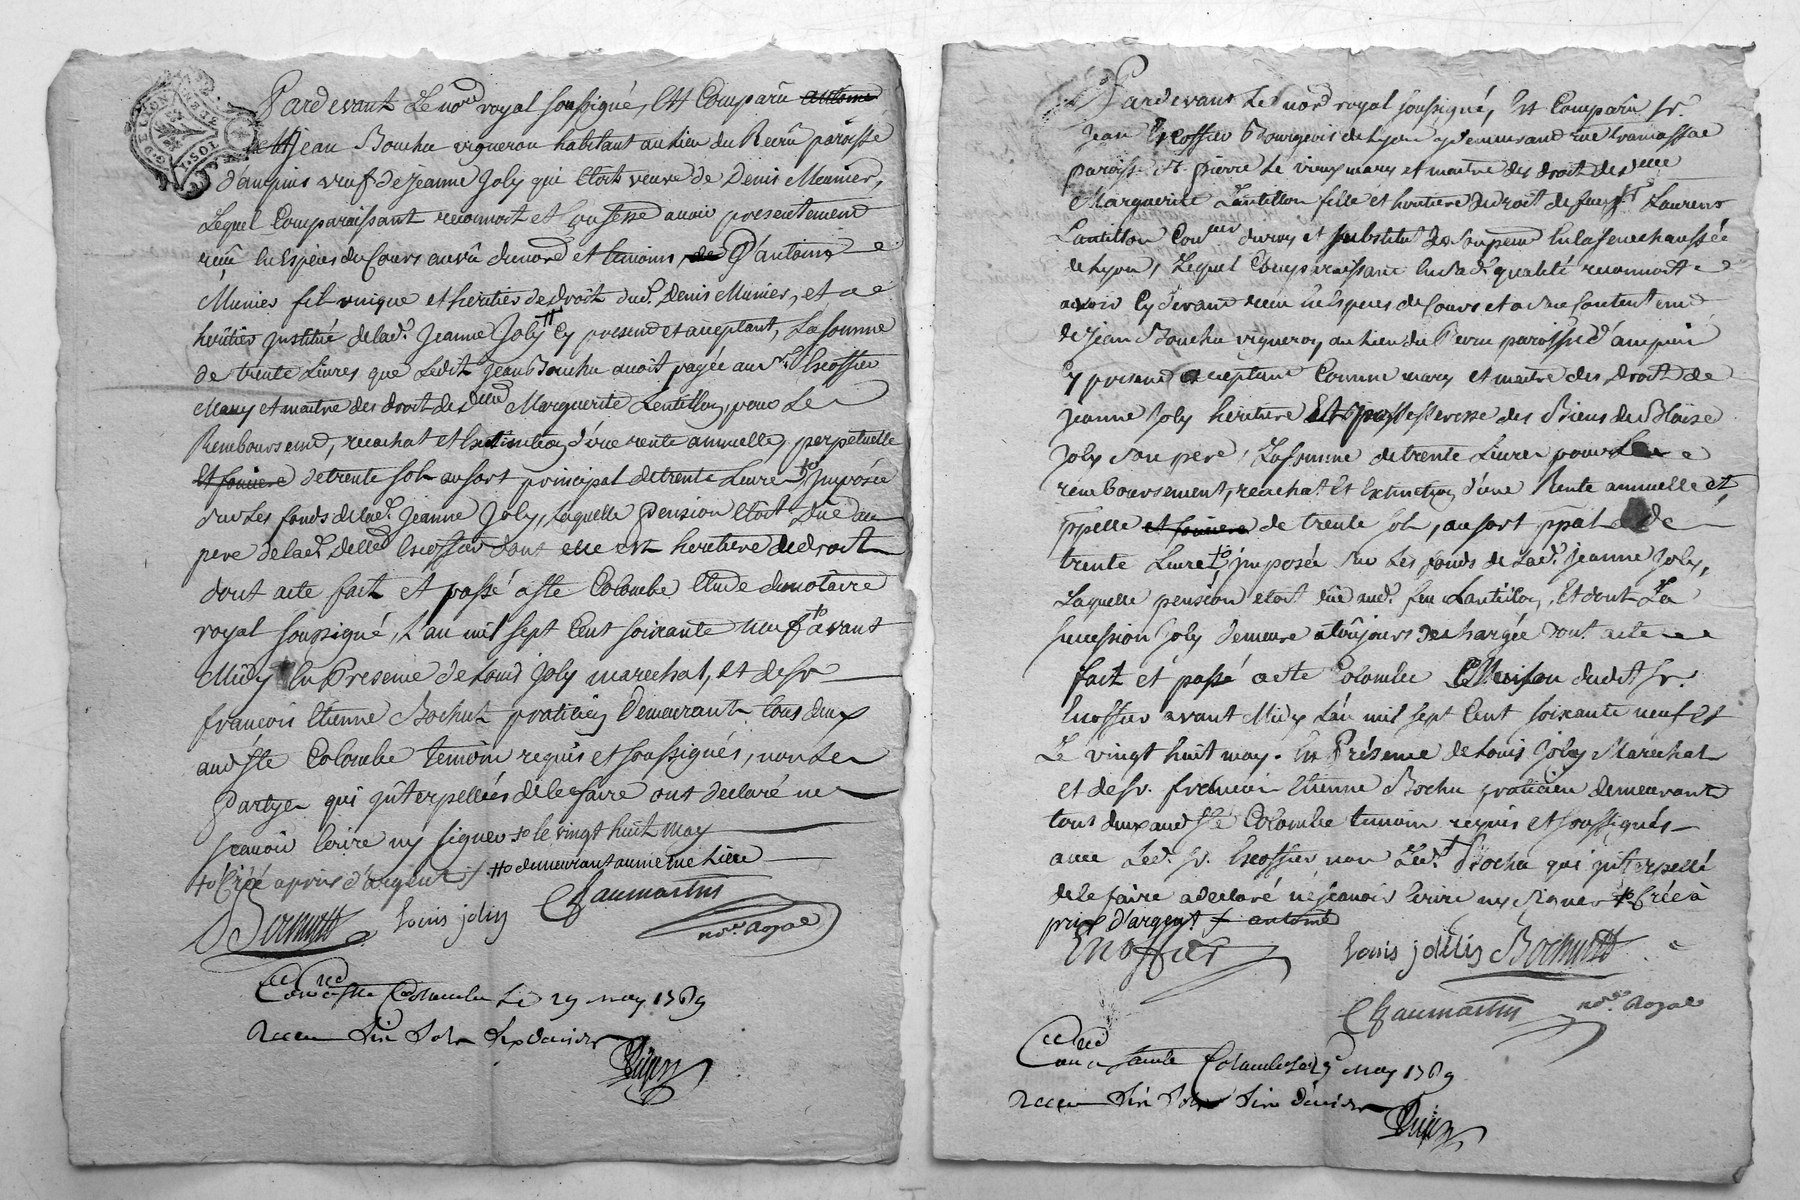 G. DE LYON
Pardevant Le no.re royal soussigné, Est Comparû antoine
Jean Bouchu vigneron habitant au lieu du Recrû paroisse
d'ampuis veuf de jeanne Joly qui Etoit veuve de Denis Meunier,
Lequel Comparaissant reconnoit et Confesse avoir presentement
reçû En Espèces du Cours au vû du no.re et temoins, de D'antoine
Munier fil unique et héritier de droit dud. Denis Munier, et
héritier institué de lad. Jeanne Joly cy present et acceptant, La somme
de trente Livres que Ledit Jean Bouchu avoit payée au sr. Escoffier
Mary et maitre des droit de d.lle Marguerite Lentillon, pour Le
Remboursem.t, reachat et Extinction d'une rente annuelle, perpetuelle
et fonciere de trente sols au sort principal de trente Livres imposée
sur Les fonds de lad. Jeanne Joly, Laquelle pension Etoit Düe au
pere de lad. Delle Escoffier dont elle est heritiere de droit
dont acte fait et passé a Ste Colombe Etude du notaire
royal soussigné, L'an mil sept Cent soixante neuf avant
Midy En Presence de Louis Joly marechal, et de sr
françois Etienne Bochut praticien Demeurant tous deux
aud. Ste Colombe temoin requis et soussignés, non Les
partyes qui interpellées de le faire ont declaré ne
scavoir Ecrire ny signer le vingt huit may
Créé a prix d'argent demeurant au meme Lieu
Bochutt Louis joliy Chaumartin
no.re Royal
Con.lé a Ste Colombe Le 29 may 1769
Recu Six Sols Six deniers
Pardevant Le no.re royal soussigné, Est Comparû Sr.
Jean Escoffier Bourgeois de Lyon y demeurand rue tramassac
paroisse St. pierre Le vieux mary et maitre des droit de d.lle
Marguerite Lantillon fille et heritiere de droit de feu sr Laurens
Lantillon Con.er du roy et substitut de Son procu En la senechaussée
de Lyon, Lequel Comparaissant En Sad. qualité reconnoit
avoir Cy devant reçu En Especes de Cours et a son Contentem.t
de Jean Bouchu vigneron au lieu du Recru paroisse d'ampuis
Cy present acceptant Comme mary et maitre des droit de
Jeanne Joly heritiere Et possesseresse des Biens de Blaise
Joly son pere, La somme de trente Livres pour Le
remboursement, reachat Et Extinction d'une Rente annuelle et
ppelle et fonciere de trente sols, au sort ppal de
trente Livre imposée sur Les fonds de Lad. Jeanne Joly,
Laquelle pension etoit düe aud. feu Lantillon, Et dont La
succession Joly demeure a toûjours dechargée dont acte
fait et passé a Ste Colombe Maison dudit sr.
Escoffier avant Midy L'an mil sept Cent soixante neuf Et
Le vingt huit may. En Présence de Louis Joly Marechal
et de Sr. francois Etienne Bochu praticien demeurant
tous deux aud. Ste Colombe temoin requis et soussignés
avec Led. Sr. Escoffier non Led. Bochu qui interpellé
de le faire a declaré ne scavoir Ecrire ny signer Créé à
prix d'argent antoine
Escoffier Louis joliy Bochutt
Chaumartin no.re Royal
Con.lé a Sainte Colombe Le 29 may 1769
Recu Six Sols Six deniers